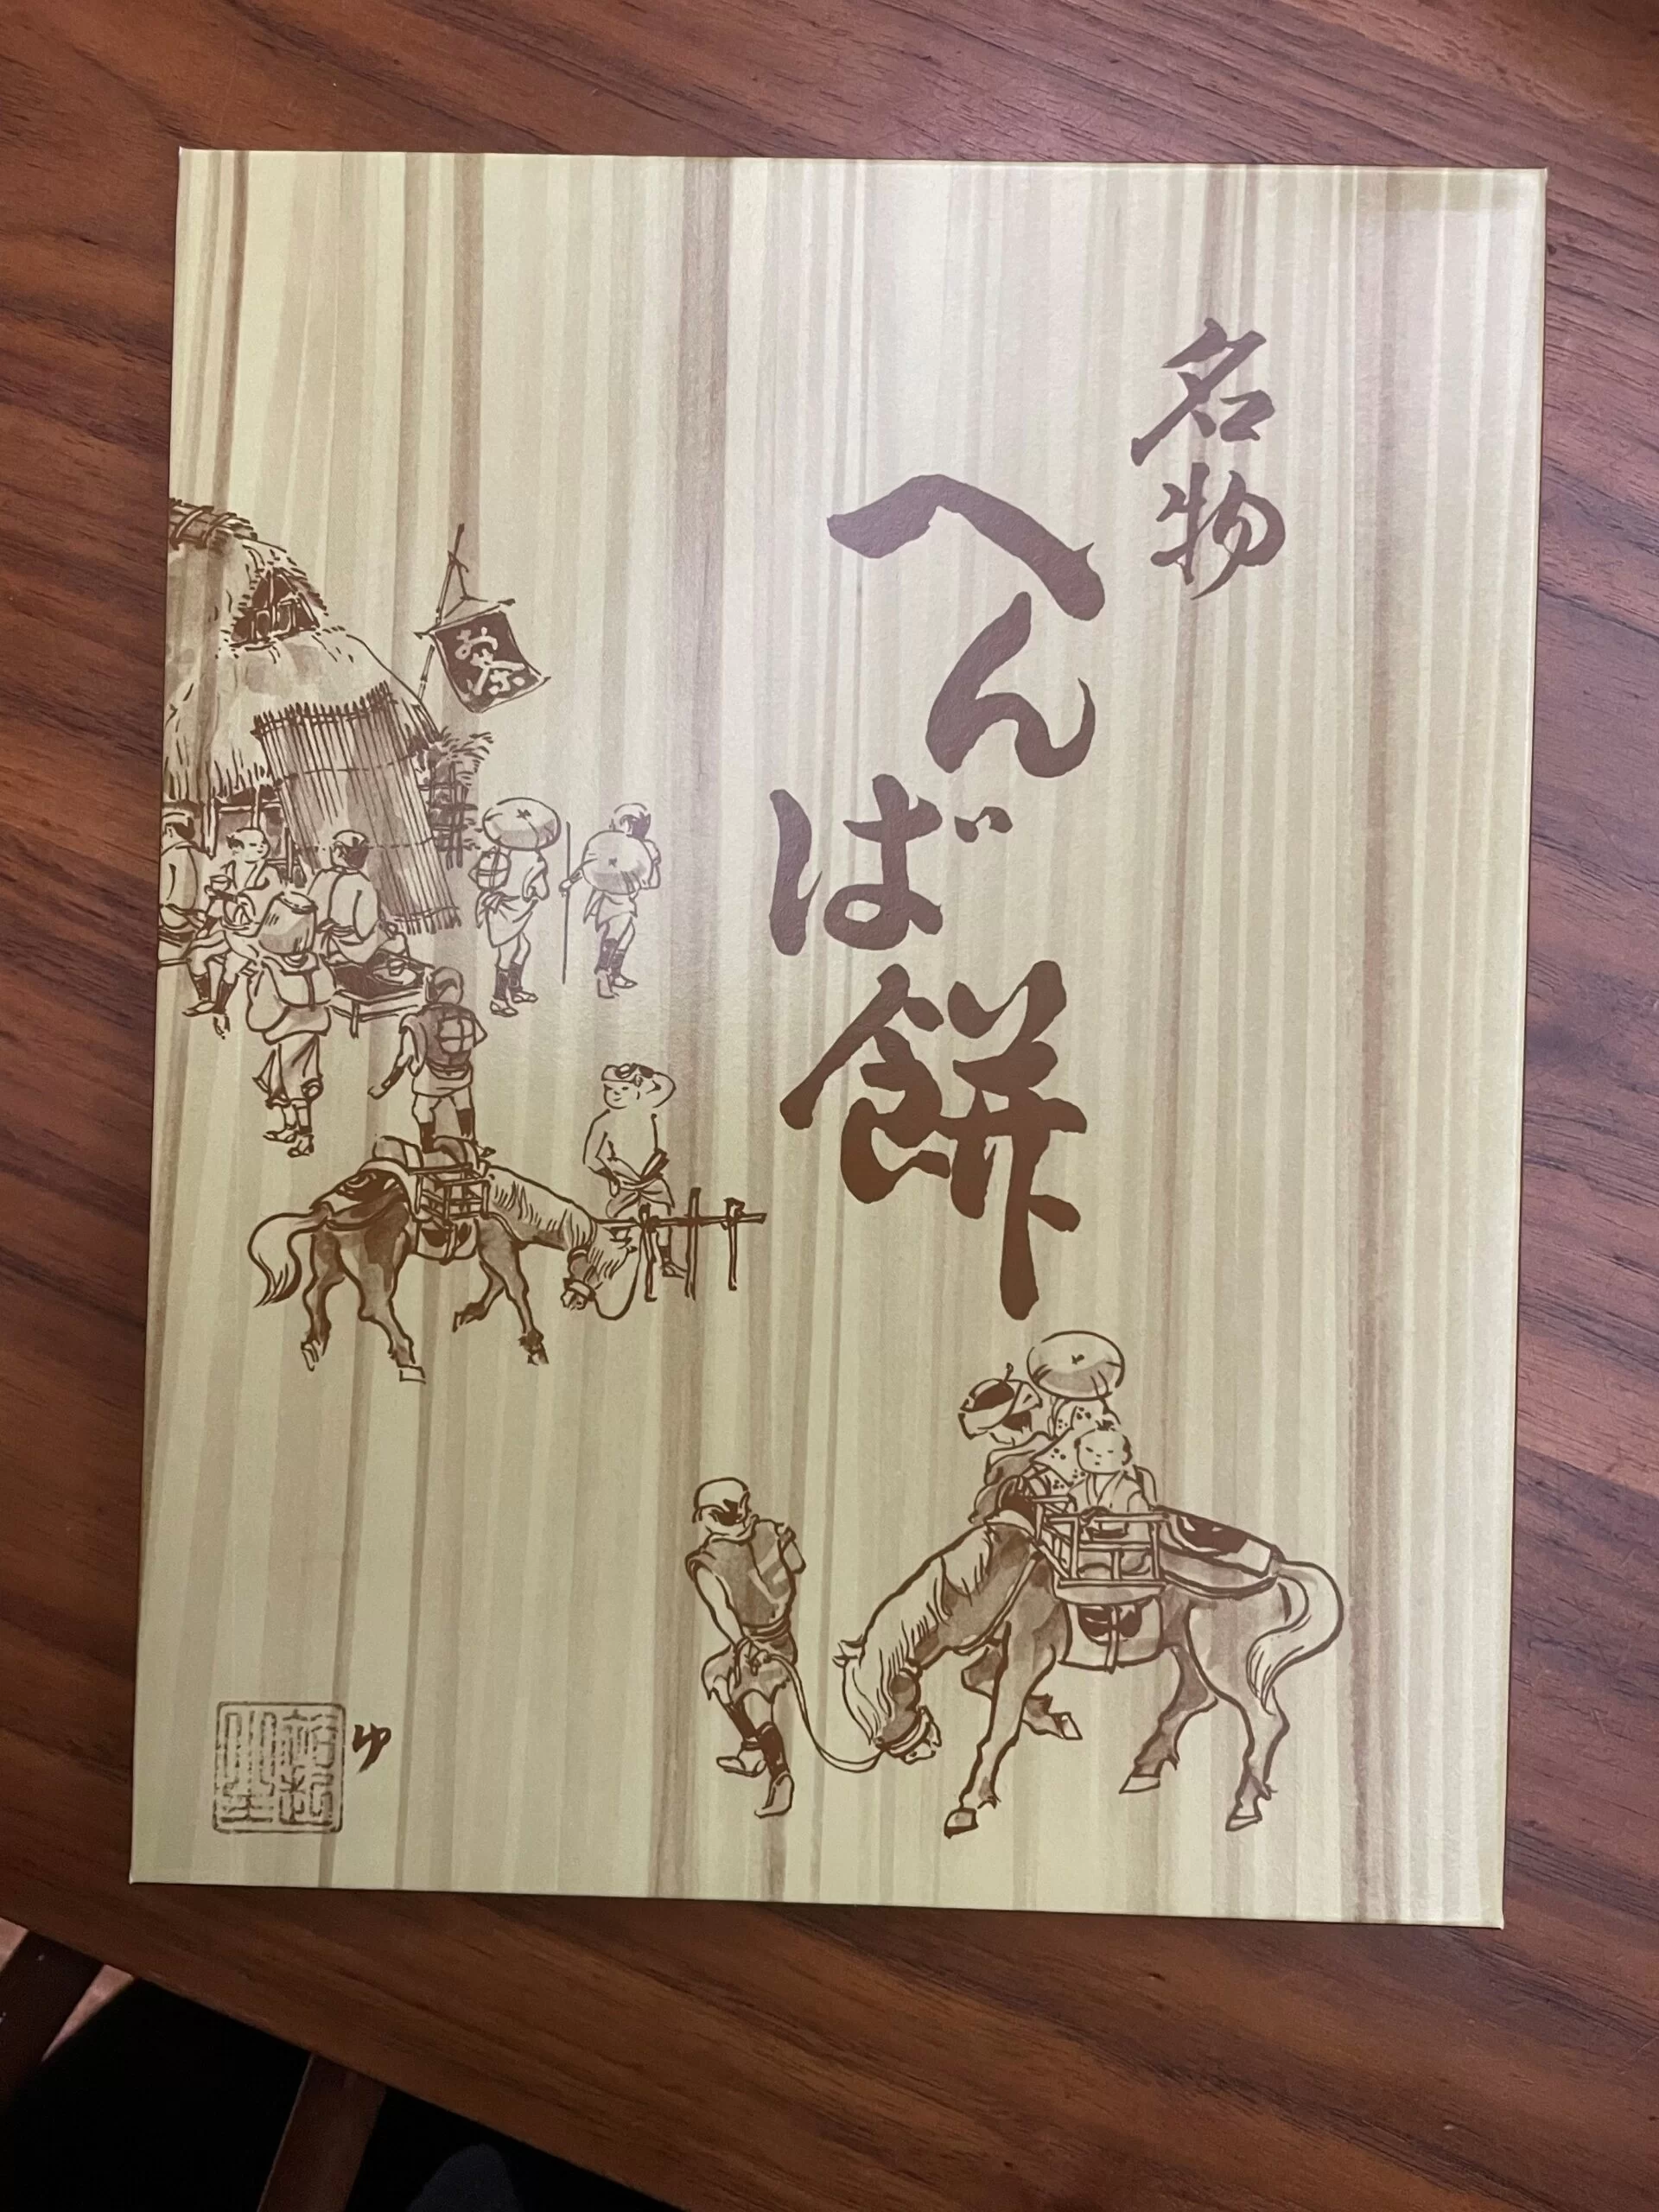 名物
へんば餅
お茶